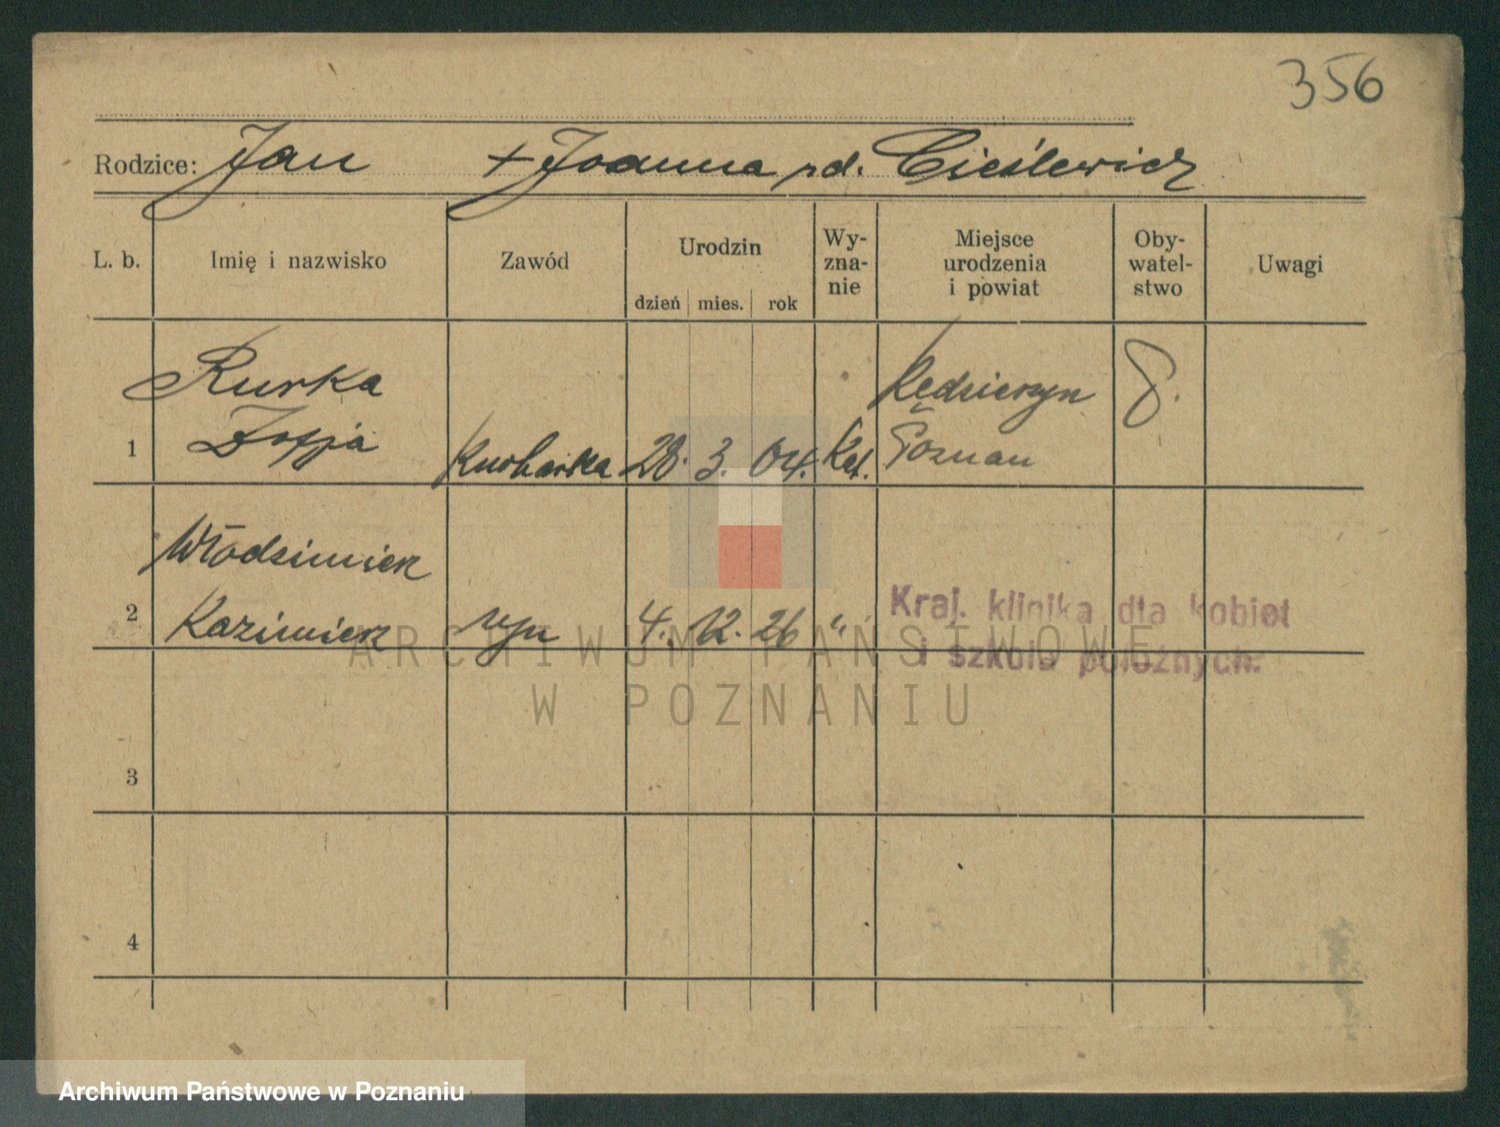 356
Rodzice: Jan + Joanna rd. Cieślewicz
L. b. Imię i nazwisko Zawód Urodzin dzień mies. rok Wy-zna-nie Miejsce urodzenia i powiat Oby-watel-stwo Uwagi
Rurka Kędzierzyn
1 Zofja Kucharka 28. 3. 04. Kat. Poznań P.
Włodzimierz
2 Kazimierz syn 4. 12. 26 " Kraj. klinika dla kobiet
i szkoła położnych.
3
4
ARCHIWUM PAŃSTWOWE
W POZNANIU
Archiwum Państwowe w Poznaniu